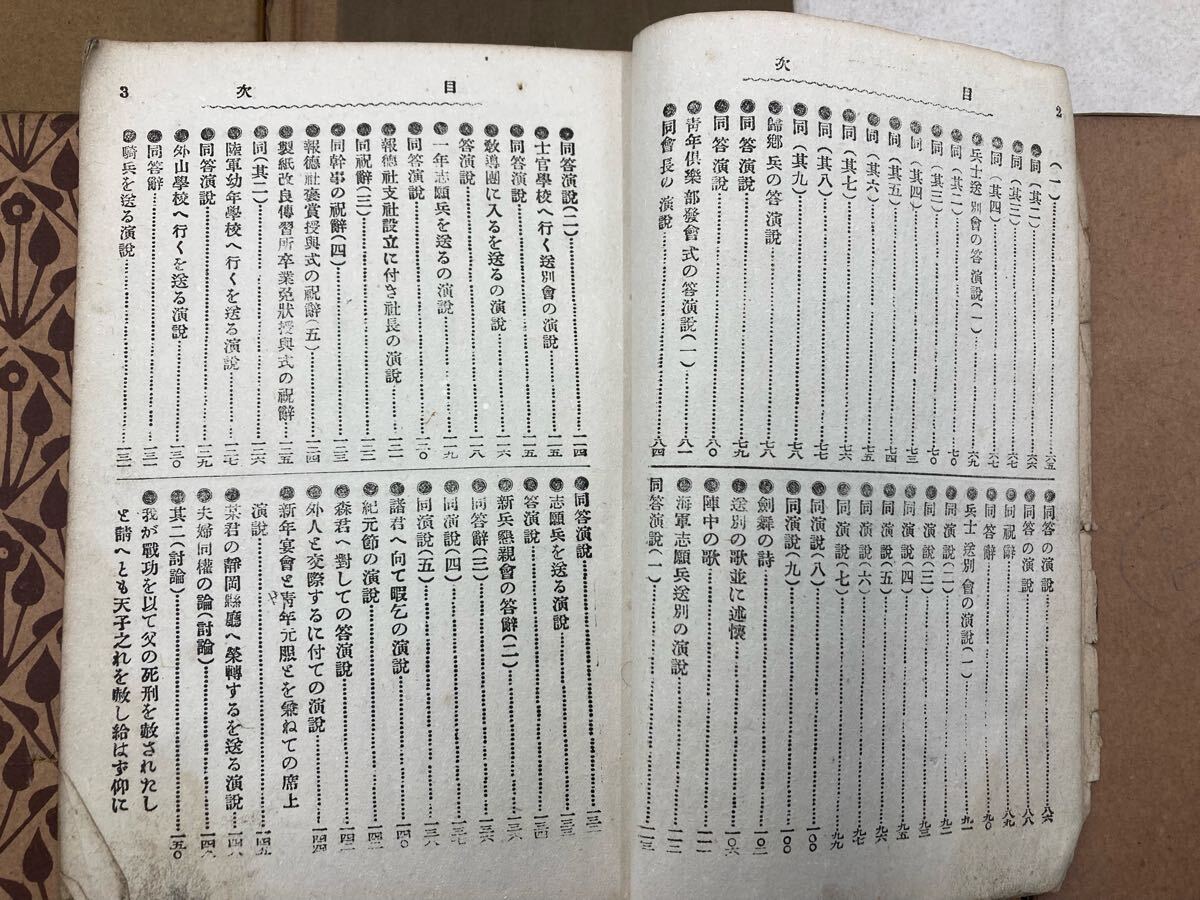 目次 2
(一)……六五
●同(其二)……六六
●同(其三)……六七
●同(其四)……六七
●兵士送別會の答演說(一)……六九
●同(其二)……七〇
●同(其三)……七〇
●同(其四)……七三
●同(其五)……七四
●同(其六)……七五
●同(其七)……七六
●同(其八)……七七
●同(其九)……七八
●歸鄕兵の答演說……七八
●同答演說……七九
●同答演說……八〇
●靑年俱樂部發會式の答演說(一)……八一
●同會長の演說……八四
●同答の演說……八六
●同答の演說……八八
●同祝辭……八九
●同答辭……九〇
●兵士送別會の演說(一)……九一
●同演說(二)……九二
●同演說(三)……九三
●同演說(四)……九五
●同演說(五)……九六
●同演說(六)……九七
●同演說(七)……九九
●同演說(八)……一〇〇
●同演說(九)……一〇〇
●劍舞の詩……一〇二
●送別の歌並に述懷……一〇六
●陣中の歌……一一一
●海軍志願兵送別の演說……一一二
●同答演說(一)……一一三
目次 3
●同答演說(二)……一一四
●士官學校へ行く送別會の演說……一一五
●同答演說……一一五
●敎導團に入るを送るの演說……一一六
●答演說……一一八
●一年志願兵を送るの演說……一一九
●同答演說……一二〇
●報德社支社設立に付き社長の演說……一二一
●同祝辭(三)……一二二
●同幹事の祝辭(四)……一二三
●報德社褒賞授與式の祝辭(五)……一二四
●製紙改良傳習所卒業免狀授與式の祝辭……一二五
●同(其二)……一二六
●陸軍幼年學校へ行くを送る演說……一二七
●同答演說……一二九
●外山學校へ行くを送る演說……一三〇
●同答辭……一三一
●騎兵を送る演說……一三一
●同答演說……一三二
●志願兵を送る演說……一三三
●答演說……一三四
●新兵懇親會の答辭(二)……一三六
●同答辭(三)……一三六
●同演說(四)……一三七
●同演說(五)……一三八
●諸君へ向て暇乞の演說……一四〇
●紀元節の演說……一四二
●森君へ對しての答演說……一四二
●外人と交際するに付ての演說……一四四
●新年宴會と靑年元服とを兼ねての席上
演說……一四五
●某君の靜岡縣廳へ榮轉するを送る演說……一四六
●夫婦同權の論(討論)……一四八
●其二(討論)……一五〇
●我が戰功を以て父の死刑を赦されたし
と請へとも天子之れを赦し給はず仰に